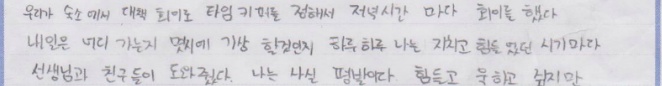 우리가 숙소에서 대책 회의로 타임키퍼를 정해서 저녁시간 마다 회의를 했다
내일은 어디 가는지 몇시에 기상 할건인지 하루하루 나는 지치고 힘들 었던 시기마다
선생님과 친구들이 도와줬다. 나는 사실 떰발이다. 힘들고 욱하고 쉽지만